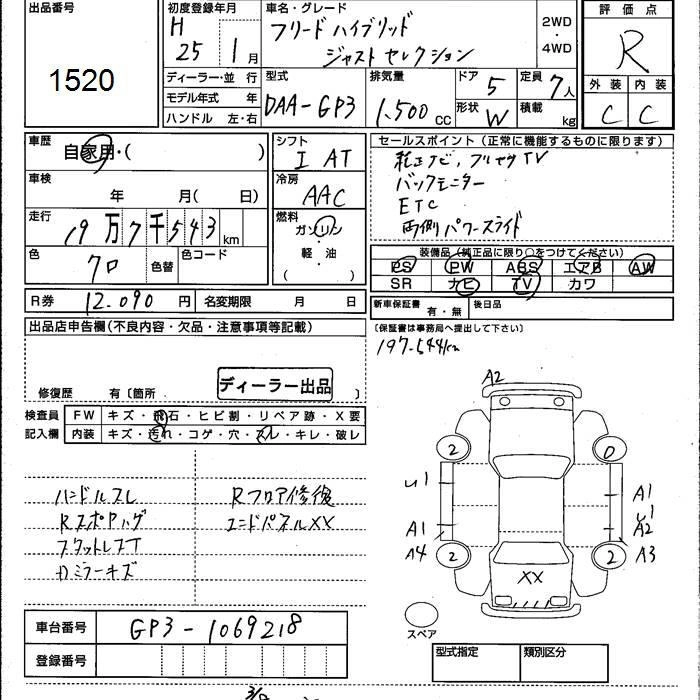 出品番号
1520
初度登録年月
H
25 1 月
車名・グレード
フリードハイブリッド
ジャストセレクション
2WD
・
4WD
評価点
R
外装 内装
C C
ディーラー・並 行
モデル年式 年
ハンドル 左・右
型式
DAA-GP3
排気量
1.500 cc
ドア 5
形状 W
定員 7人
積載 kg
車歴
自家用・( )
車検
年 月( 日)
走行
19万7千543 km
色
クロ 色替
色コード
シフト
I AT
冷房
AAC
燃料
ガソリン
・
軽・油
( )
セールスポイント(正常に機能するものに限ります)
純正ナビ,フルセグTV
バックモニター
ETC
両側パワースライド
装備品(純正品に限り○をつけてください)
PS PW ABS エアB AW
SR ナビ TV カワ
R券 12.090 円 名変期限 月 日
新車保証書 有・無 後日品
(保証書は事務局へ提出して下さい)
出品店申告欄(不良内容・欠品・注意事項等記載)
ディーラー出品
修復歴 有〔箇所 〕
197-544km
検査員 FW キズ・飛石・ヒビ割・リペア跡・X要
記入欄 内装 キズ・汚れ・コゲ・穴・スレ・キレ・破レ
ハンドルスレ
Rスポイラグ
スタットレスT
Dミラーキズ
Rフロア修復
エンドパネルXX
A2
2 0
U1 A1
U1
A1 A2
A4 2 2 A3
XX
スペア
車台番号 GP3-1069218
登録番号
型式指定 類別区分